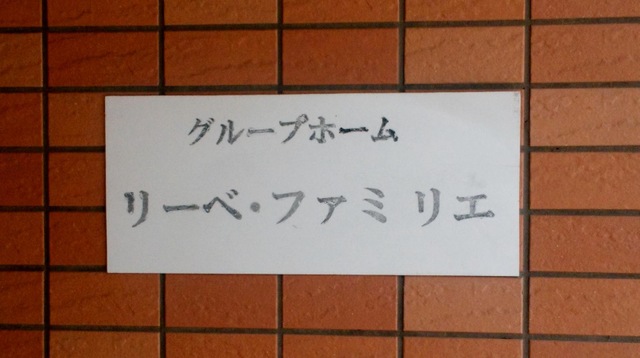 グループホーム
リーベ・ファミリエ